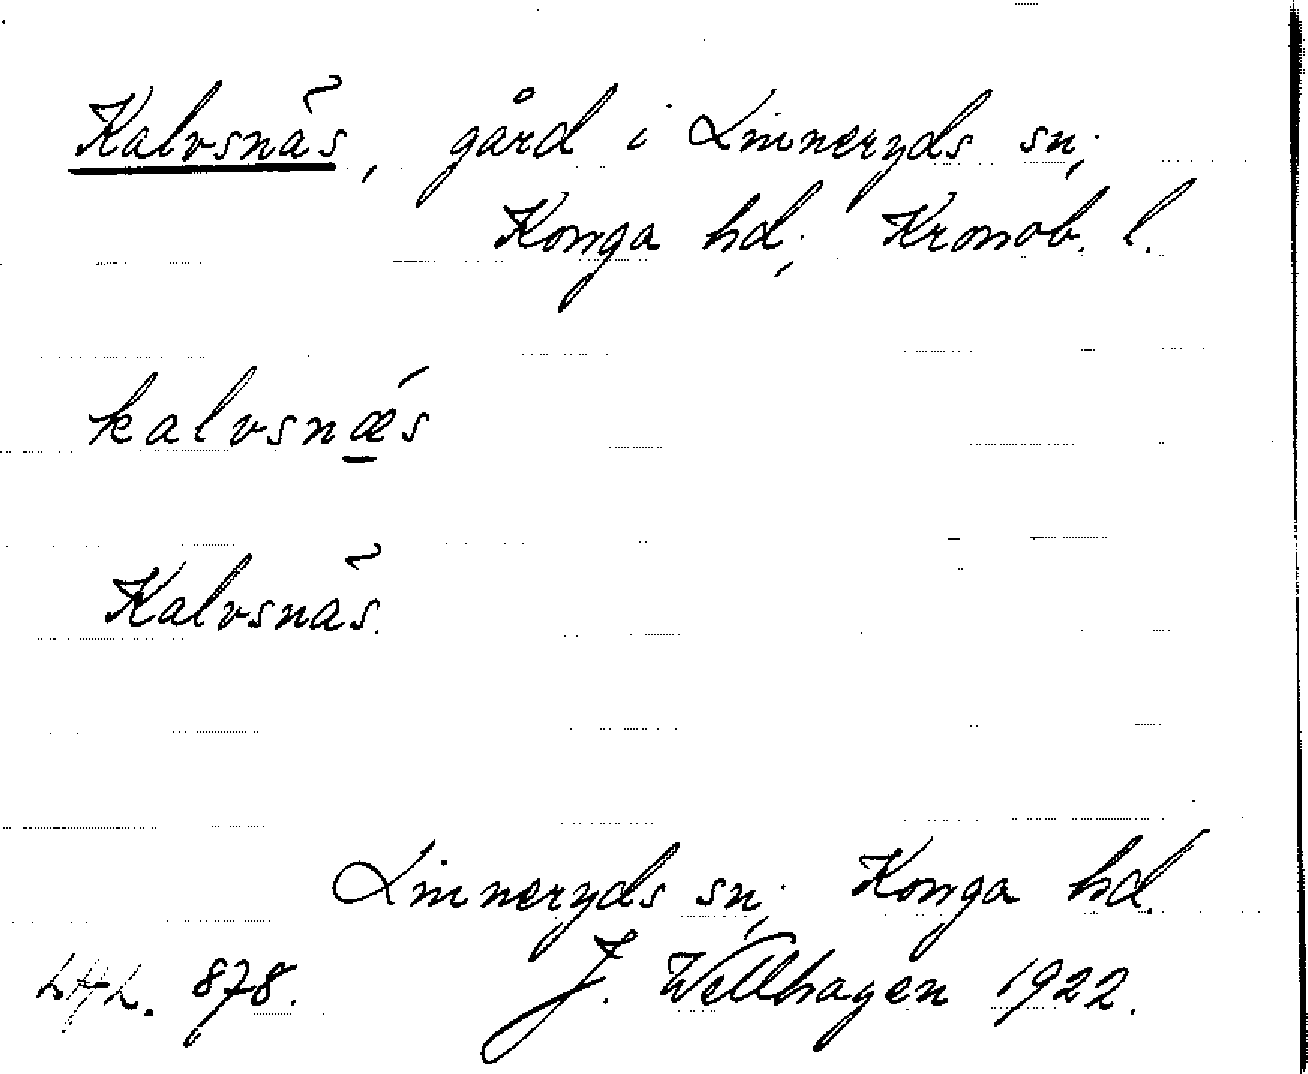 Kalvsnäs, gård i Linneryds sn.,
Konga hd., Kronob. l.
kalvsnǽ̱s
Kalvsnäs.
Linneryds sn., Konga hd.
878. J. Wellhagen 1922.